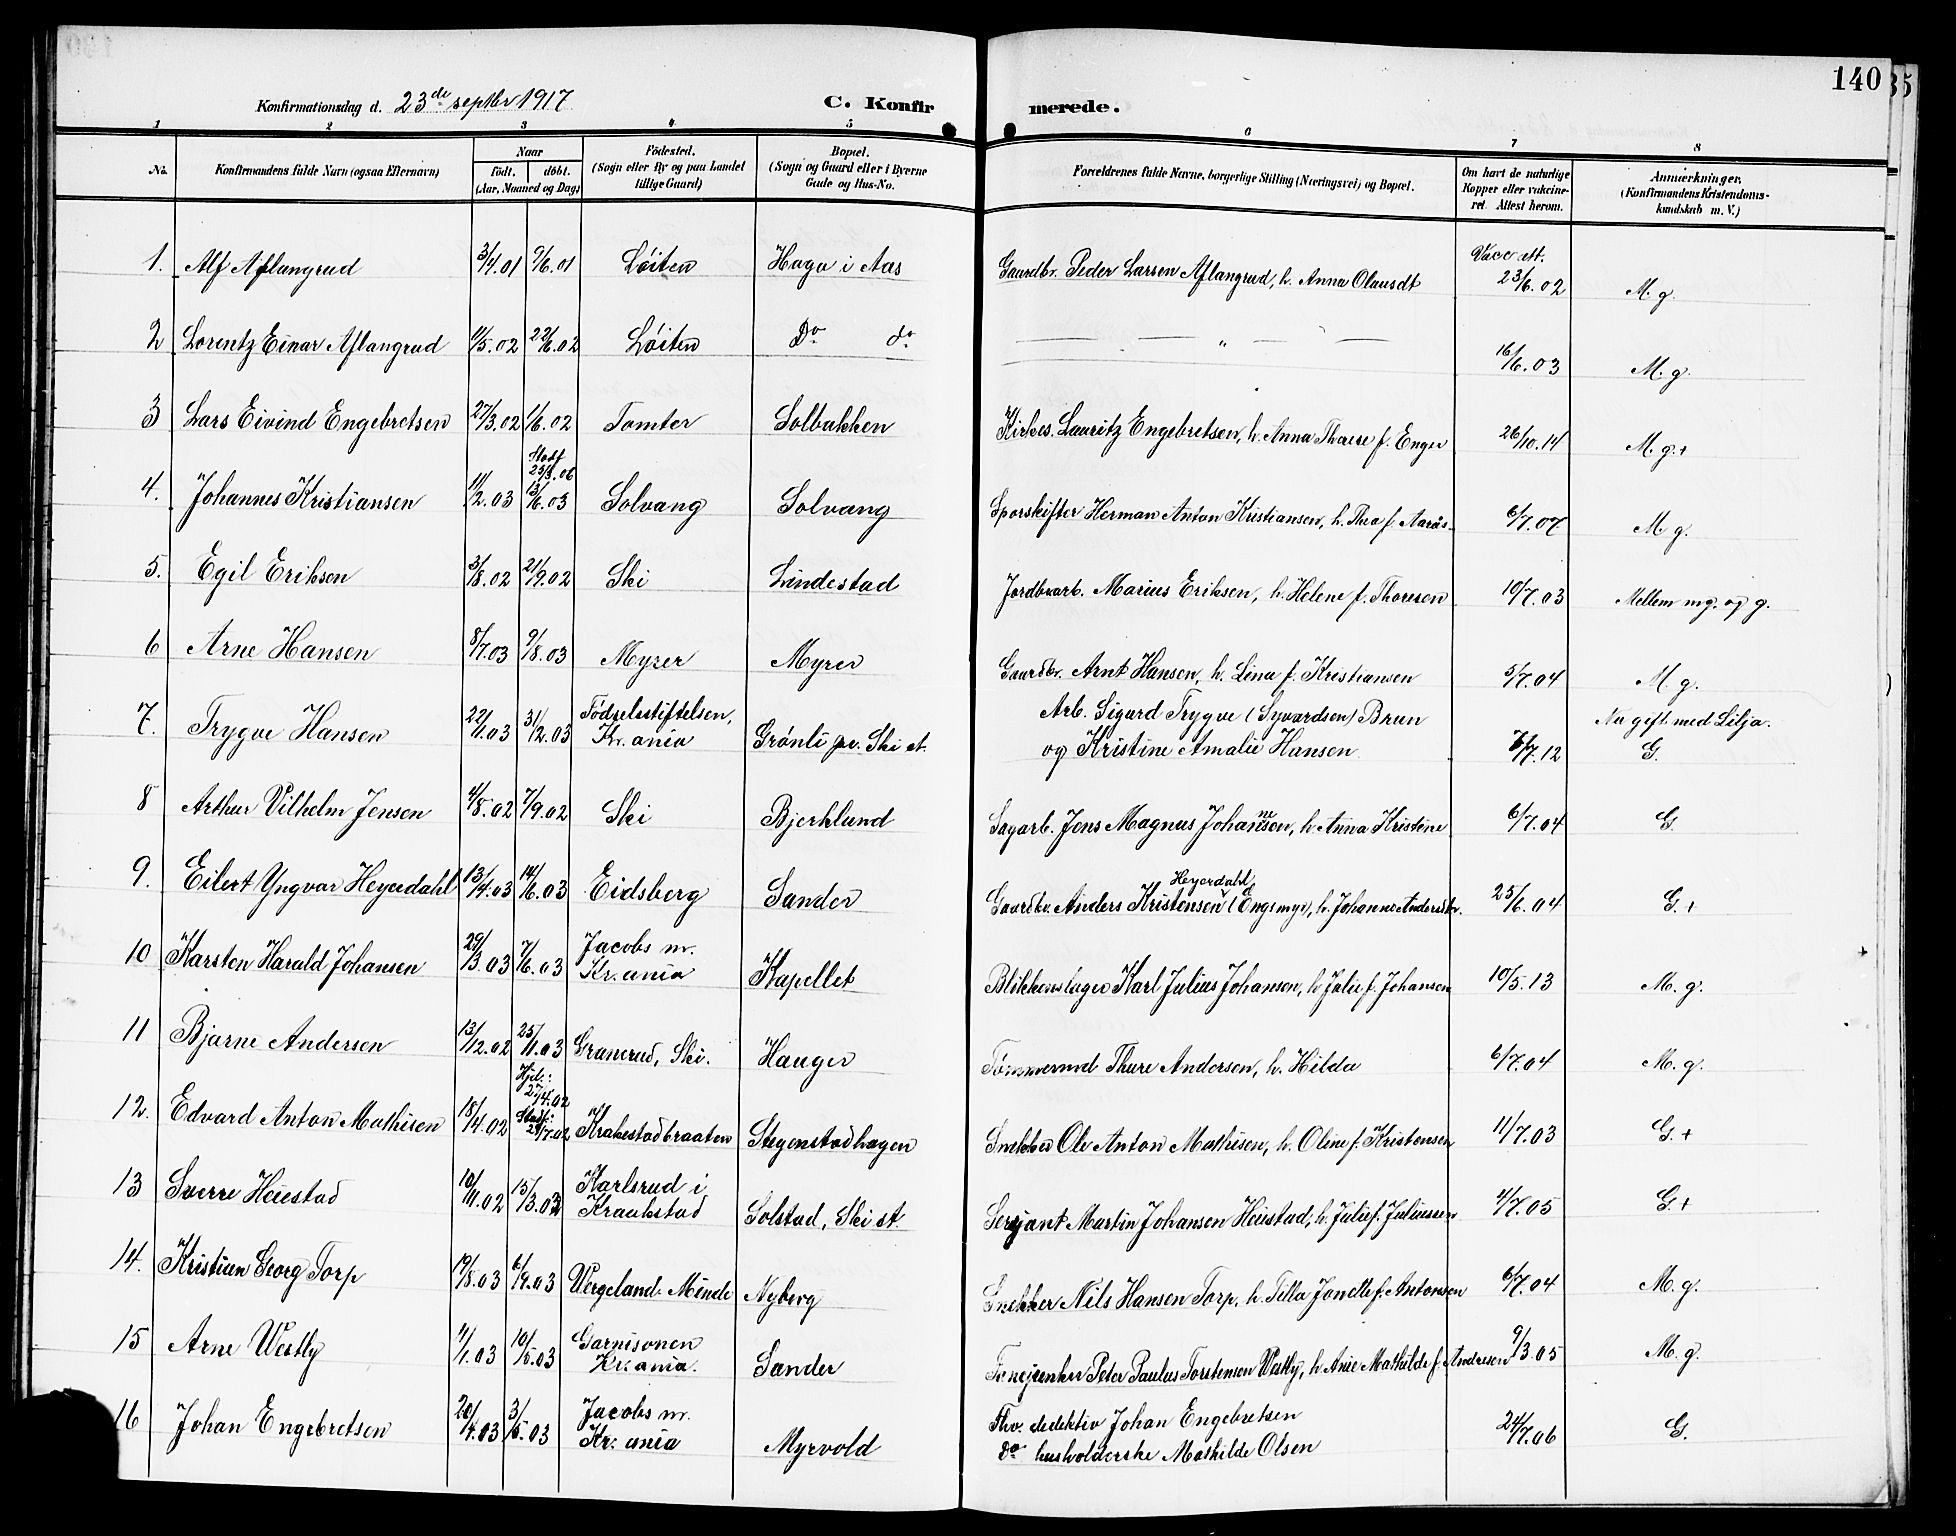 140
Konfirmationsdag d. 23de septbr 1917
C. Konfirmerede.
1 2 3 4 5 6 7 8
No. Konfirmandens fulde Navn (ogsaa Efternavn) Naar født. døbt. (Aar, Maaned og Dag) Fødested. (Sogn eller By og paa Landet tillige Gaard) Bopæl. (Sogn og Gaard eller i Byerne Gade og Hus-No. Forældrenes fulde Navne, borgerlige Stilling (Næringsvei) og Bopæl. Om havt de naturlige Kopper eller vakcineret. Attest herom. Anmærkninger. (Konfirmandens Kristendomskundskab m. V.)
1. Alf Aflangrud 3/4.01 9/6.01 Løiten Haga i Aas Gaardbr. Peder Larsen Aflangrud, h. Anna Olausdt Vacc. att. 23/6.02 M. g.
2 Lorentz Einar Aflangrud 11/5.02 22/6.02 Löiten Do do — — " — — 16/6.03 M. g.
3 Lars Eivind Engebretsen 27/3.02 1/6.02 Tomter Solbakken Kirkes. Lauritz Engebretsen, h. Anna Thorese f. Enger 26/10.14 M. g.+
4. Johannes Kristiansen 11/2.03 Stadf. 25/3.06 13/6.03 Solvang Solvang Sporskifter Herman Anton Kristiansen, h. Thea f. Aarås 6/7.07 M. g.
5. Egil Eriksen 3/8.02 21/9.02 Ski Lindestad Jordbrarb. Marius Eriksen, h. Helene f. Thoresen 10/7.03 Mellem mg. og g.
6 Arne Hansen 8/7.03 9/8.03 Myrer Myrer Gaardbr. Arnt Hansen, h. Lina f. Kristiansen 5/7.04 M. g.
7. Trygve Hansen 22/1.03 31/12.03 Fødselsstiftelsen, Kr.ania Grønli pr. Ski st. Arb. Sigurd Trygve (Syvardsen) Brun
og Kristine Amalie Hansen 7.12 Nu gift med Lilja. G.
8 Arthur Vilhelm Jensen 4/8.02 7/9.02 Ski Bjerklund Sagarb. Jens Magnus Johansen, h. Anna Kristine 6/7.04 G.
9. Eilert Yngvar Heyerdahl 13/4.03 14/6.03 Eidsberg Sander Gaardbr. Anders Kristensen Heyerdahl (Engsmyr), h. Johanne Andersdtr. 25/6.04 G.+
10 Karsten Harald Johansen 29/3.03 7/6.03 Jacobs m. Kr.ania Kapellet Blikkenslager Karl Julius Johansen, h. Julie f. Johansen 10/5.13 M. g.
11 Bjarne Andersen 13/12.02 25/11.03 Granerud, Ski. Hauger Tømmermd Thure Andersen, h. Hilda 6/7.04 M. g.
12. Edvard Anton Mathisen 18/4.02 Hjd.: 27/4.02 Stadf.: 7.02 Krakestadbraaten Stegenstadhagen Snekker Ole Anton Mathisen, h. Oline f. Kristensen 11/7.03 G.+
13 Sverre Heiestad 10/11.02 15/3.03 Karlsrud i Kraakstad Solstad, Ski st. Serjant Martin Johansen Heiestad, h. Julie f. Juliussen 4/7.05 G+
14. Kristian Georg Torp 19/8.03 6/9.03 Vergeland. Minde Nyberg Snekker Nils Hansen Torp, h. Tilla Jonette f. Antonsen 6/7.04 M. g.
15 Arne Westby 4/1.03 10/5.03 Garnisonen Kr.ania. Sander Peter Paulus Torstensen Westby, h. Anie Mathilde f. Andresen 9/3.05 M. g.
16 Johan Engebretsen 20/4.03 3/5.03 Jacobs m. Kr.ania Myrvold Fhv. dedektiv Johan Engebretsen
Do husholderske Mathilde Olsen 24/7.06 G.